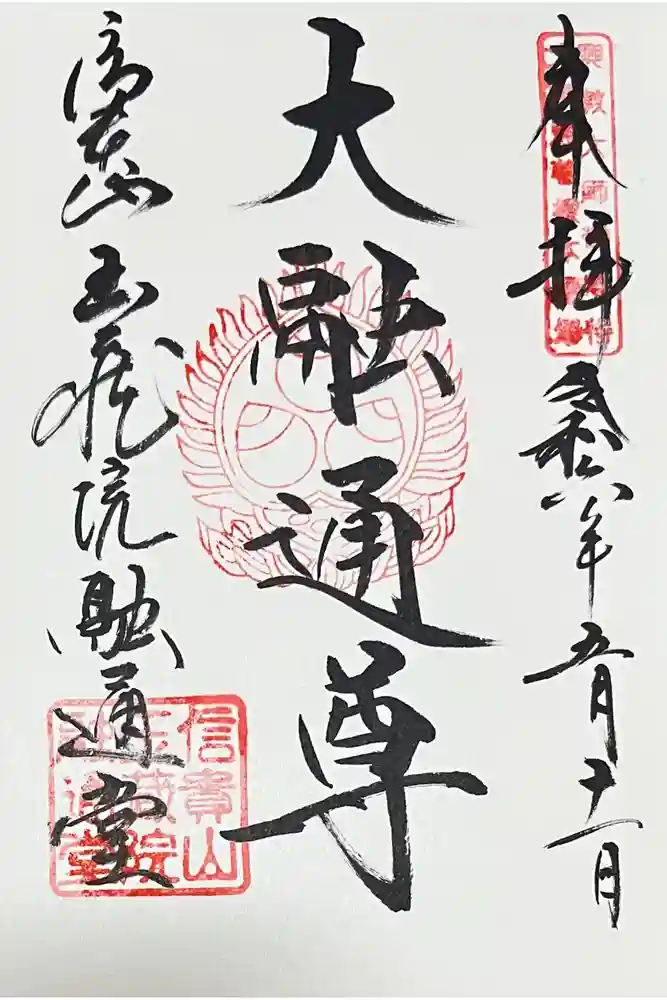 奉拝 令和六年五月十一日
大融通尊
信貴山 玉蔵院 融通堂
興教大師
信貴山
玉蔵院
融通堂